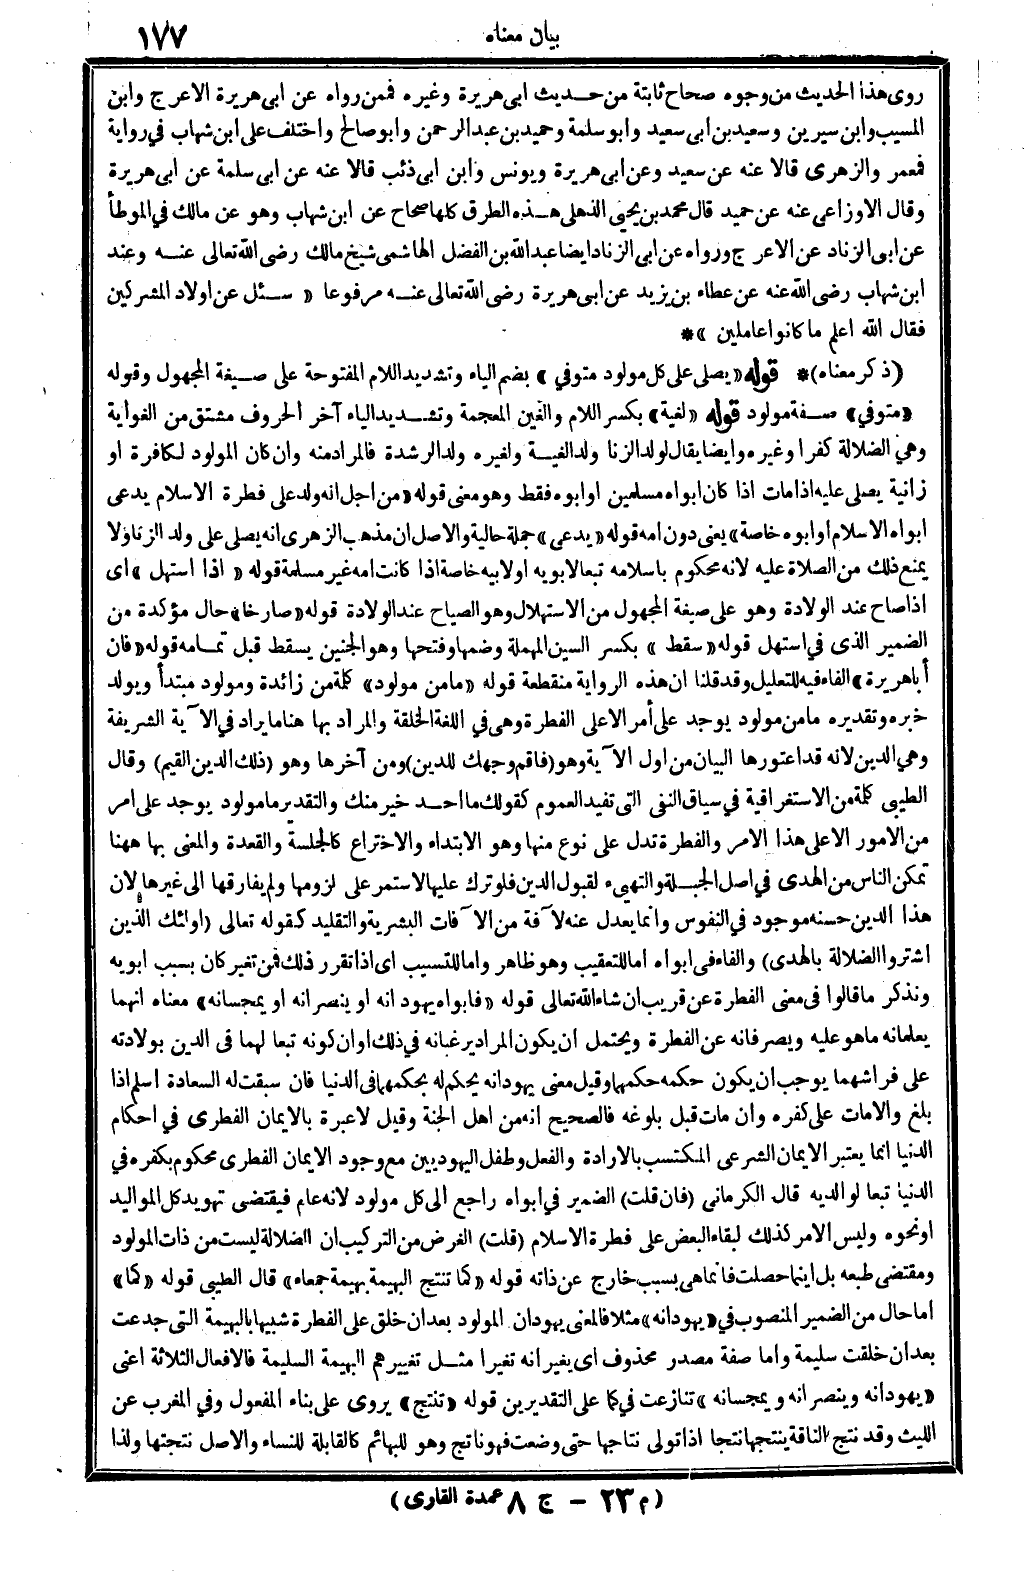 بيان معناه ١٧٧
روى هذا الحديث من وجوه صحاح ثابتة من حديث ابى هريرة وغيره فمن رواه عن ابى هريرة الاعرج وابن
المسيب وابن سيرين وسعيد بن ابى سعيد وابو سلمة وحميد بن عبد الرحمن وابو صالح واختلف على ابن شهاب في رواية
فمعمر والزهرى قالا عنه عن سعيد وعن ابى هريرة ويونس وابن ابى ذئب قالا عنه عن ابى سلمة عن ابى هريرة
وقال الاوزاعى عنه عن حميد قال محمد بن يحيى الذهلى هذه الطرق كلها صحاح عن ابن شهاب وهو عن مالك في الموطأ
عن ابى الزناد عن الاعرج ورواه عن ابى الزناد ايضا عبد الله بن الفضل الهاشمى شيخ مالك رضى الله تعالى عنه وعند
ابن شهاب رضى الله عنه عن عطاء بن يزيد عن ابى هريرة رضى الله تعالى عنه مرفوعا « سئل عن اولاد المشركين
فقال الله اعلم ما كانوا عاملين » *
(ذكر معناه) * قوله « يصلى على كل مولود متوفي » بضم الياء وتشديد اللام المفتوحة على صيغة المجهول وقوله
«متوفي» صفة مولود قوله «لغية» بكسر اللام والغين المعجمة وتشديد الياء آخر الحروف مشتق من الغواية
وهي الضلالة كفرا وغيره وايضا يقال لولد الزنا ولد الغية ولغيره ولد الرشدة فالمراد منه وان كان المولود لكافرة او
زانية يصلى عليه اذا مات اذا كان ابواه مسلمين او ابوه فقط وهو معنى قوله «من اجل انه ولد على فطرة الاسلام يدعى
ابواه الاسلام او ابوه خاصة» يعنى دون امه قوله «يدعى» جملة حالية والاصل ان مذهب الزهرى انه يصلى على ولد الزنا ولا
يمنع ذلك من الصلاة عليه لانه محكوم باسلامه تبعا لابويه او لابيه خاصة اذا كانت امه غير مسلمة قوله « اذا استهل » اى
اذا صاح عند الولادة وهو على صيغة المجهول من الاستهلال وهو الصياح عند الولادة قوله «صارخا» حال مؤكدة من
الضمير الذى في استهل قوله « سقط » بكسر السين المهملة وضمها وفتحها وهو الجنين يسقط قبل تمامه قوله «فان
أبا هريرة» الفاء فيه للتعليل وقد قلنا ان هذه الرواية منقطعة قوله «ما من مولود» كلمة من زائدة ومولود مبتدأ ويولد
خبره وتقديره ما من مولود يوجد على أمر الا على الفطرة وهى في اللغة الخلقة والمراد بها هنا ما يراد في الآية الشريفة
وهي الدين لانه قد اعتورها البيان من اول الآية وهو (فاقم وجهك للدين) ومن آخرها وهو (ذلك الدين القيم) وقال
الطيبى كلمة من الاستغراقية في سياق النفى التى تفيد العموم كقولك ما احد خير منك والتقدير ما مولود يوجد على امر
من الامور الا على هذا الامر والفطرة تدل على نوع منها وهو الابتداء والاختراع كالجلسة والقعدة والمعنى بها ههنا
تمكن الناس من الهدى في اصل الجبلة والتهيء لقبول الدين فلو ترك عليها لاستمر على لزومها ولم يفارقها الى غيرها لان
هذا الدين حسنه موجود في النفوس وانما يعدل عنه لآفة من الآفات البشرية والتقليد كقوله تعالى (اولئك الذين
اشتروا الضلالة بالهدى) والفاء فى ابواه اما للتعقيب وهو ظاهر واما للتسبيب اى اذا تقرر ذلك فمن تغير كان بسبب ابويه
ونذكر ما قالوا فى معنى الفطرة عن قريب ان شاء الله تعالى قوله «فابواه يهودانه او ينصرانه او يمجسانه» معناه انهما
يعلمانه ما هو عليه ويصرفانه عن الفطرة ويحتمل ان يكون المراد يرغبانه في ذلك او ان كونه تبعا لهما فى الدين بولادته
على فراشهما يوجب ان يكون حكمه حكمهما وقيل معنى يهودانه يحكم له بحكمهما فى الدنيا فان سبقت له السعادة اسلم اذا
بلغ والا مات على كفره وان مات قبل بلوغه فالصحيح انه من اهل الجنة وقيل لا عبرة بالايمان الفطرى في احكام
الدنيا انما يعتبر الايمان الشرعى المكتسب بالارادة والفعل وطفل اليهوديين مع وجود الايمان الفطرى محكوم بكفره في
الدنيا تبعا لوالديه قال الكرمانى (فان قلت) الضمير في ابواه راجع الى كل مولود لانه عام فيقتضى تهويد كل المواليد
او نحوه وليس الامر كذلك لبقاء البعض على فطرة الاسلام (قلت) الغرض من التركيب ان الضلالة ليست من ذات المولود
ومقتضى طبعه بل اينما حصلت فانما هى بسبب خارج عن ذاته قوله «كما تنتج البهيمة بهيمة جمعاء» قال الطيبى قوله «كما»
اما حال من الضمير المنصوب في «يهودانه» مثلا فالمعنى يهودان المولود بعد ان خلق على الفطرة شبيها بالبهيمة التى جدعت
بعد ان خلقت سليمة واما صفة مصدر محذوف اى يغيرانه تغيرا مثل تغييرهم البهيمة السليمة فالافعال الثلاثة اعنى
«يهودانه وينصرانه ويمجسانه» تنازعت في كما على التقديرين قوله «تنتج» يروى على بناء المفعول وفي المغرب عن
الليث وقد نتج الناقة ينتجها نتجا اذا تولى نتاجها حتى وضعت فهو ناتج وهو للبهائم كالقابلة للنساء والاصل نتجتها ولذا
(م ٢٣ - ج ٨ عمدة القارى)